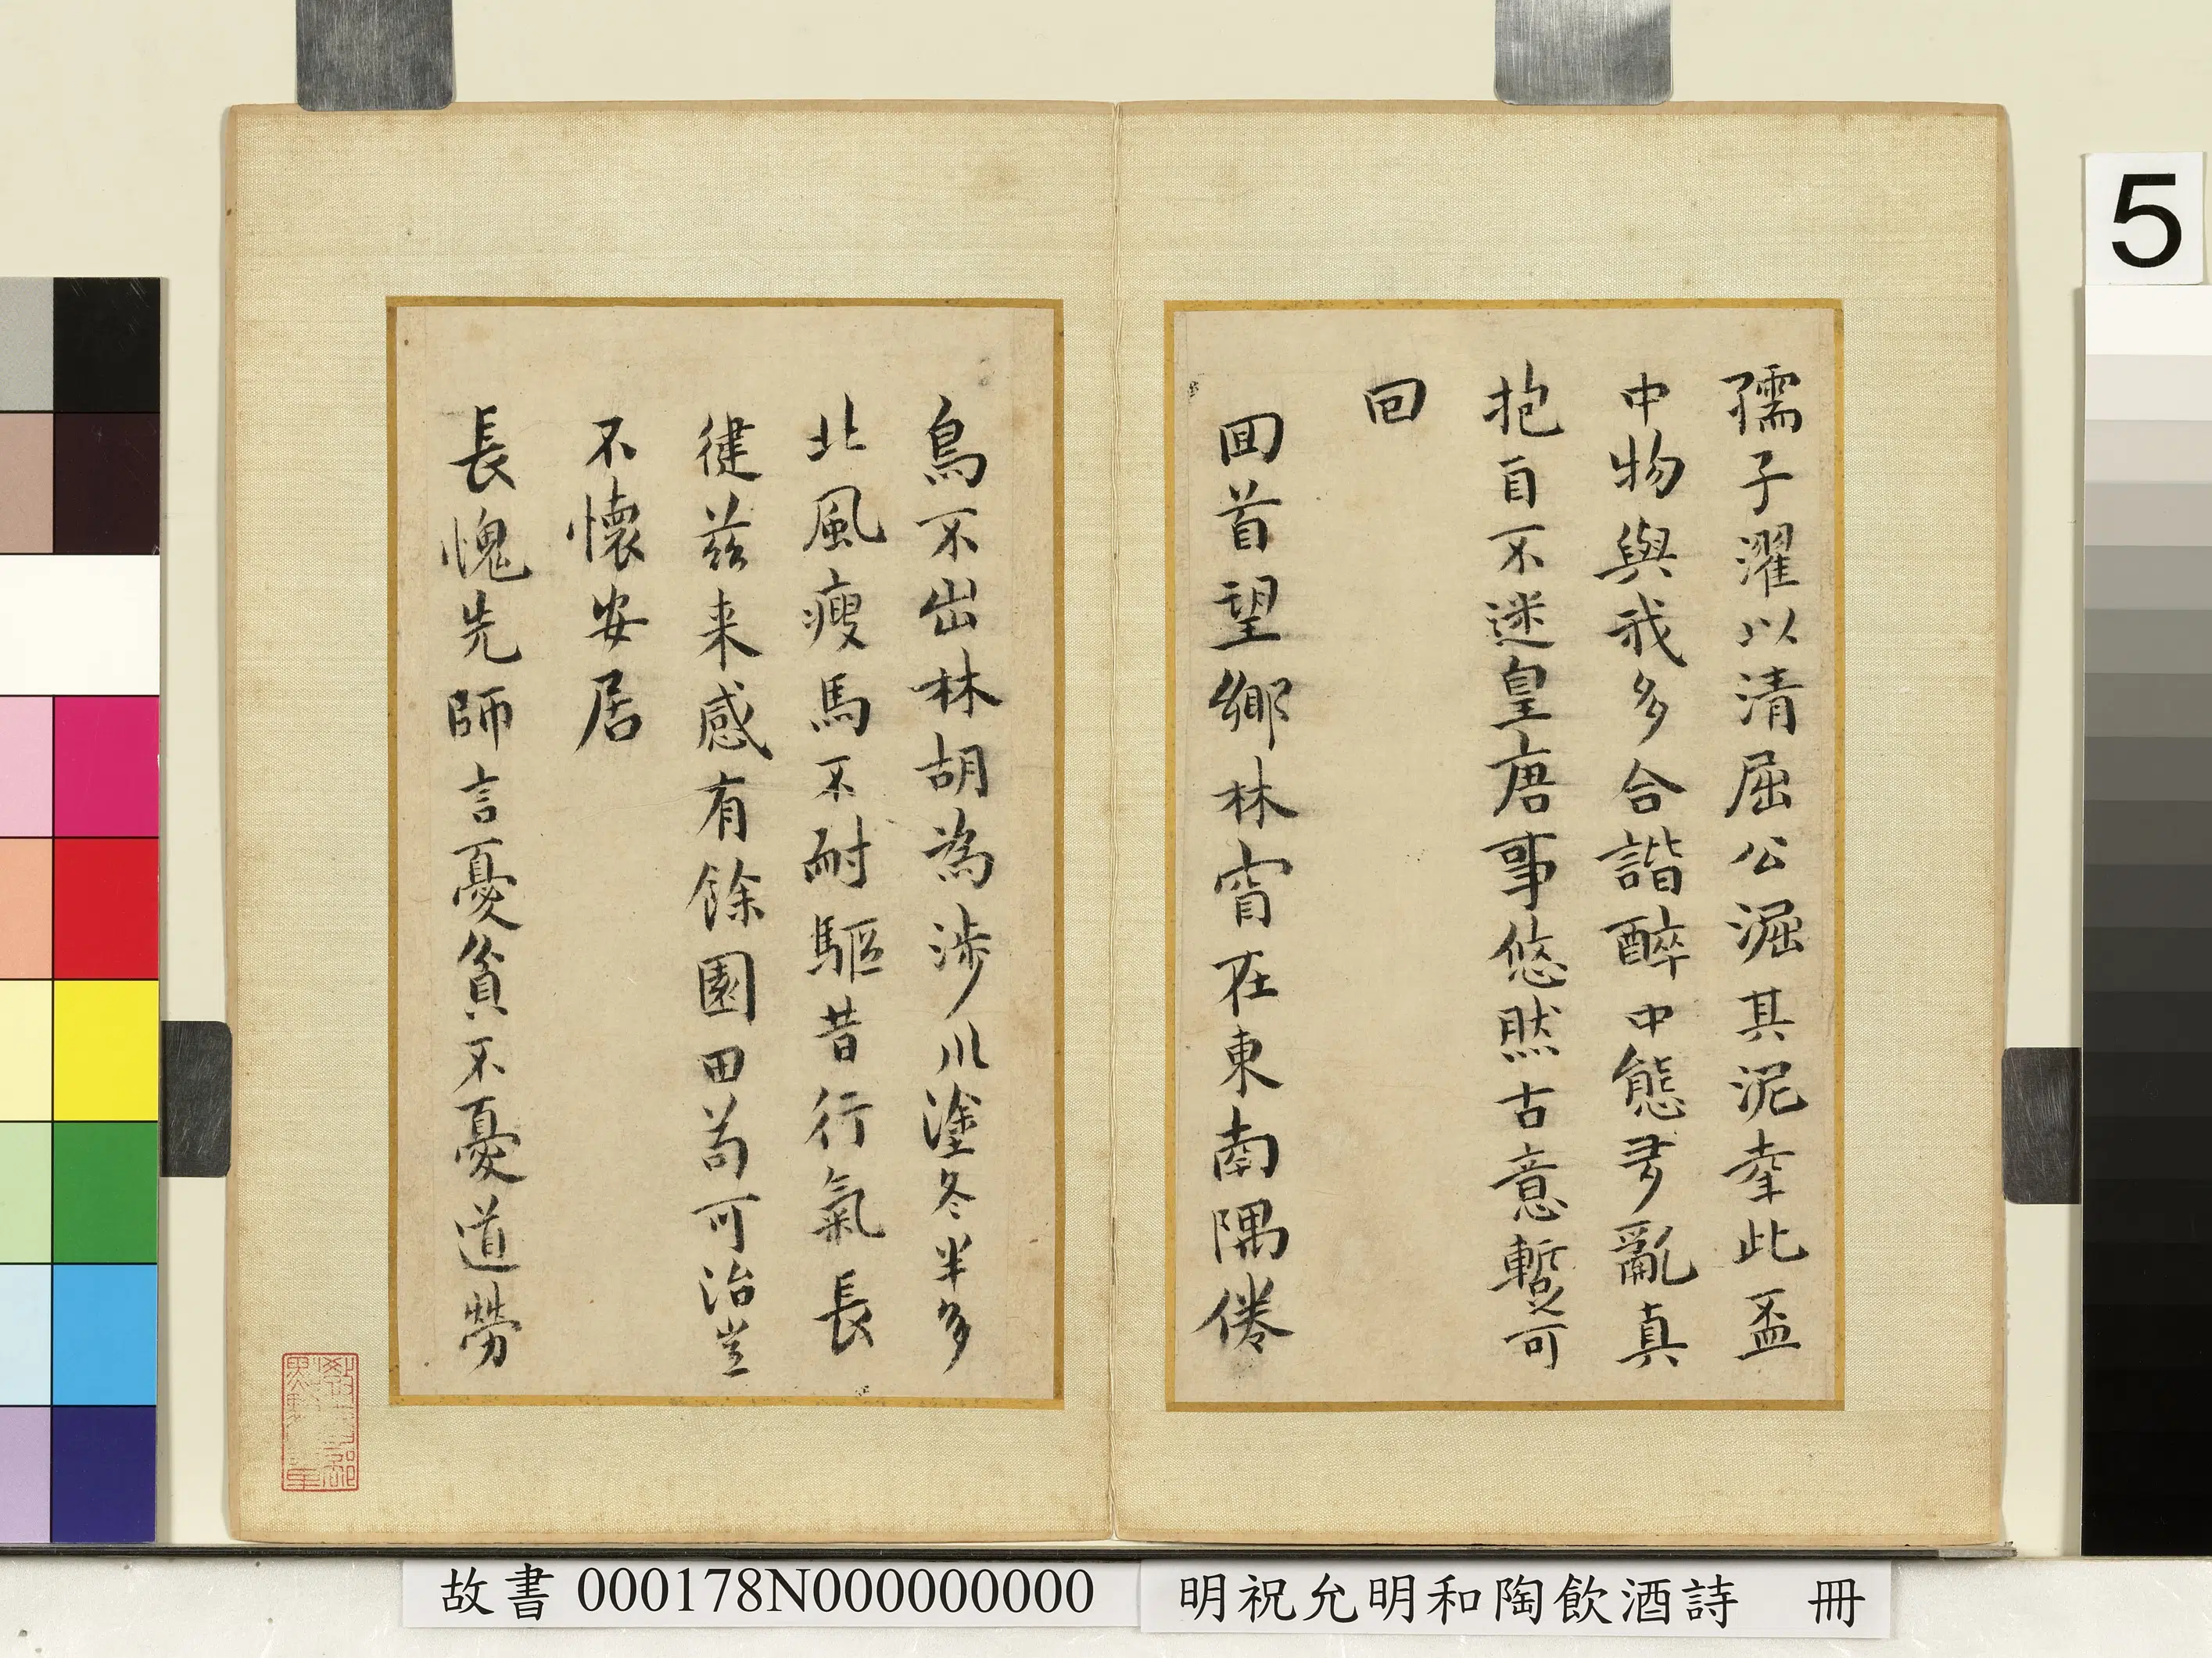 5
孺子濯以清屈公淈其泥幸此盃
中物與我多合諧醉中態亂真
抱自不迷皇唐事悠然古意暫可
回
囬首望鄉林窅在東南隅倦
鳥不出林胡為涉川塗冬半多
北風瘦馬不耐驅昔行氣長
健茲来感有餘園田苟可治豈
不懷安居
長愧先師言憂貧不憂道勞
故書 000178N000000000
明祝允明和陶飲酒詩 冊